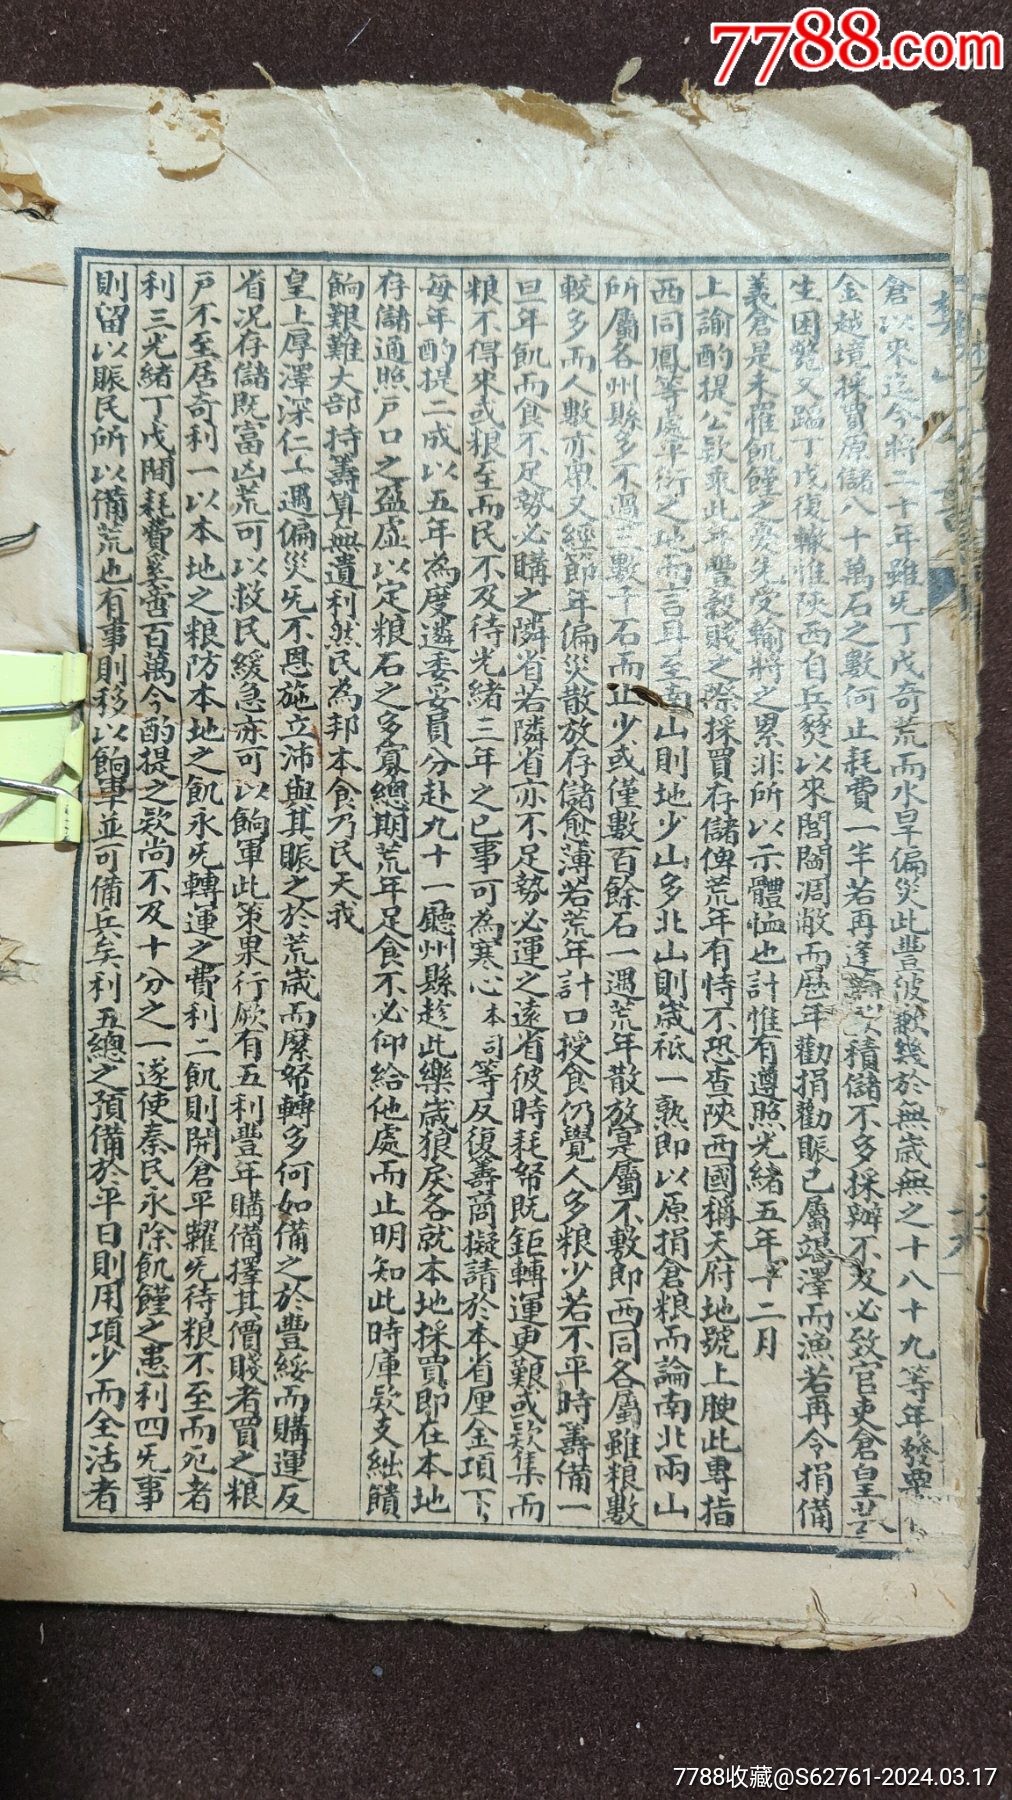 7788.com
倉以來迄今將二十年雖旡丁戊奇荒而水旱偏災此豐彼歉幾於無歲無之十八十九等年發粟
金越境採買原儲八十萬石之數何止耗費一半若再逢積儲不多採辦不及必致官吏倉皇
生困斃又蹈丁戊復轍惟陝西自兵燹以來閭閻凋敝而歷年勸捐勸賑已屬竭澤而漁若再令捐備
義倉是未罹飢饉之憂先受輸將之累非所以示體恤也計惟有遵照光緒五年十二月
上諭酌提公欵乘此年豐穀賤之際採買存儲俾荒年有恃不恐查陝西國稱天府地號上腴此專指
西同鳳等處平衍之地而言耳至南山則地少山多北山則歲祗一熟即以原捐倉粮而論南北兩山
所屬各州縣多不過三數千石而止少或僅數百餘石一遇荒年散放寔屬不敷即西同各屬雖粮數
較多而人數亦眾又經節年偏災散放存儲愈薄若荒年計口授食仍覺人多粮少若不平時籌備一
旦年飢而食不足勢必購之隣省若隣省亦不足勢必運之遠省彼時耗帑既鉅轉運更艱或欵集而
粮不得來或粮至而民不及待光緒三年之已事可為寒心本司等反復籌商擬請於本省厘金項下
每年酌提二成以五年為度遴委妥員分赴九十一廳州縣趁此樂歲狼戾各就本地採買即在本地
存儲通照戶口之盈虛以定粮石之多寡總期荒年足食不必仰給他處而止明知此時庫欵支絀饋
餉艱難大部持籌算無遺利然民為邦本食乃民天我
皇上厚澤深仁一遇偏災旡不恩施立沛與其賑之於荒歲而縻帑轉多何如備之於豐綏而購運反
省況存儲既富凶荒可以救民緩急亦可以餉軍此策果行厥有五利豐年購備擇其價賤者買之粮
戶不至居奇利一以本地之粮防本地之飢永旡轉運之費利二飢則開倉平糶旡待粮不至而死者
利三光緒丁戊間耗費奚啻百萬今酌提之欵尚不及十分之一遂使秦民永除飢饉之患利四旡事
則留以賑民所以備荒也有事則移以餉軍並可備兵矣利五總之預備於平日則用項少而全活者
7788收藏@S62761-2024.03.17